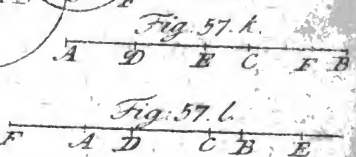 F
Fig. 57. k.
A D E C F B
Fig. 57. l.
F A D C B E